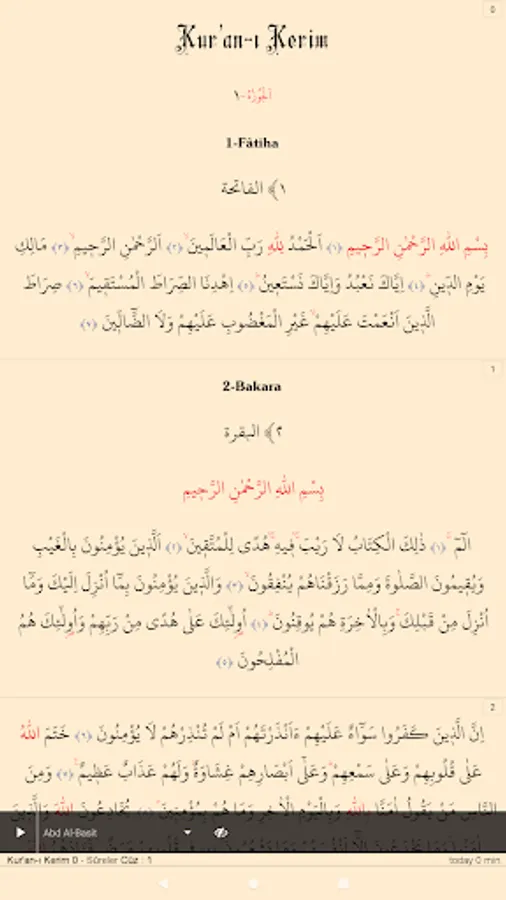 0
Kur'an-ı Kerim
اَلْجُزْءُ-١
1-Fâtiha
١﴾ الفاتحة
بِسْمِ اللهِ الرَّحْمٰنِ الرَّح۪يمِ ﴿١﴾ اَلْحَمْدُ لِلهِ رَبِّ الْعَالَم۪ينَۙ ﴿٢﴾ اَلرَّحْمٰنِ الرَّح۪يمِۙ ﴿٣﴾ مَالِكِ
يَوْمِ الدّ۪ينِۜ ﴿٤﴾ اِيَّاكَ نَعْبُدُ وَاِيَّاكَ نَسْتَع۪ينُۜ ﴿٥﴾ اِهْدِنَا الصِّرَاطَ الْمُسْتَق۪يمَۙ ﴿٦﴾ صِرَاطَ
الَّذ۪ينَ اَنْعَمْتَ عَلَيْهِمْۙ غَيْرِ الْمَغْضُوبِ عَلَيْهِمْ وَلَا الضَّٓالّ۪ينَ ﴿٧﴾
1
2-Bakara
٢﴾ البقرة
بِسْمِ اللهِ الرَّحْمٰنِ الرَّح۪يمِ
الٓمٓۜ ﴿١﴾ ذٰلِكَ الْكِتَابُ لَا رَيْبَۚ ف۪يهِۚ هُدًى لِلْمُتَّق۪ينَۙ ﴿٢﴾ اَلَّذ۪ينَ يُؤْمِنُونَ بِالْغَيْبِ
وَيُق۪يمُونَ الصَّلٰوةَ وَمِمَّا رَزَقْنَاهُمْ يُنْفِقُونَۙ ﴿٣﴾ وَالَّذ۪ينَ يُؤْمِنُونَ بِمَٓا اُنْزِلَ اِلَيْكَ وَمَٓا
اُنْزِلَ مِنْ قَبْلِكَۚ وَبِالْاٰخِرَةِ هُمْ يُوقِنُونَۜ ﴿٤﴾ اُو۬لٰٓئِكَ عَلٰى هُدًى مِنْ رَبِّهِمْ وَاُو۬لٰٓئِكَ هُمُ
الْمُفْلِحُونَ ﴿٥﴾
2
اِنَّ الَّذ۪ينَ كَفَرُوا سَوَٓاءٌ عَلَيْهِمْ ءَاَنْذَرْتَهُمْ اَمْ لَمْ تُنْذِرْهُمْ لَا يُؤْمِنُونَ ﴿٦﴾ خَتَمَ اللهُ
عَلٰى قُلُوبِهِمْ وَعَلٰى سَمْعِهِمْۜ وَعَلٰٓى اَبْصَارِهِمْ غِشَاوَةٌۘ وَلَهُمْ عَذَابٌ عَظ۪يمٌ۟ ﴿٧﴾ وَمِنَ
النَّاسِ مَنْ يَقُولُ اٰمَنَّا بِاللهِ وَبِالْيَوْمِ الْاٰخِرِ وَمَا هُمْ بِمُؤْمِن۪ينَۢ ﴿٨﴾ يُخَادِعُونَ اللهَ وَالَّذ۪ينَ
Abd Al-Basit
Kur'an-ı Kerim 0 - Sûreler Cüz : 1
today 0 min